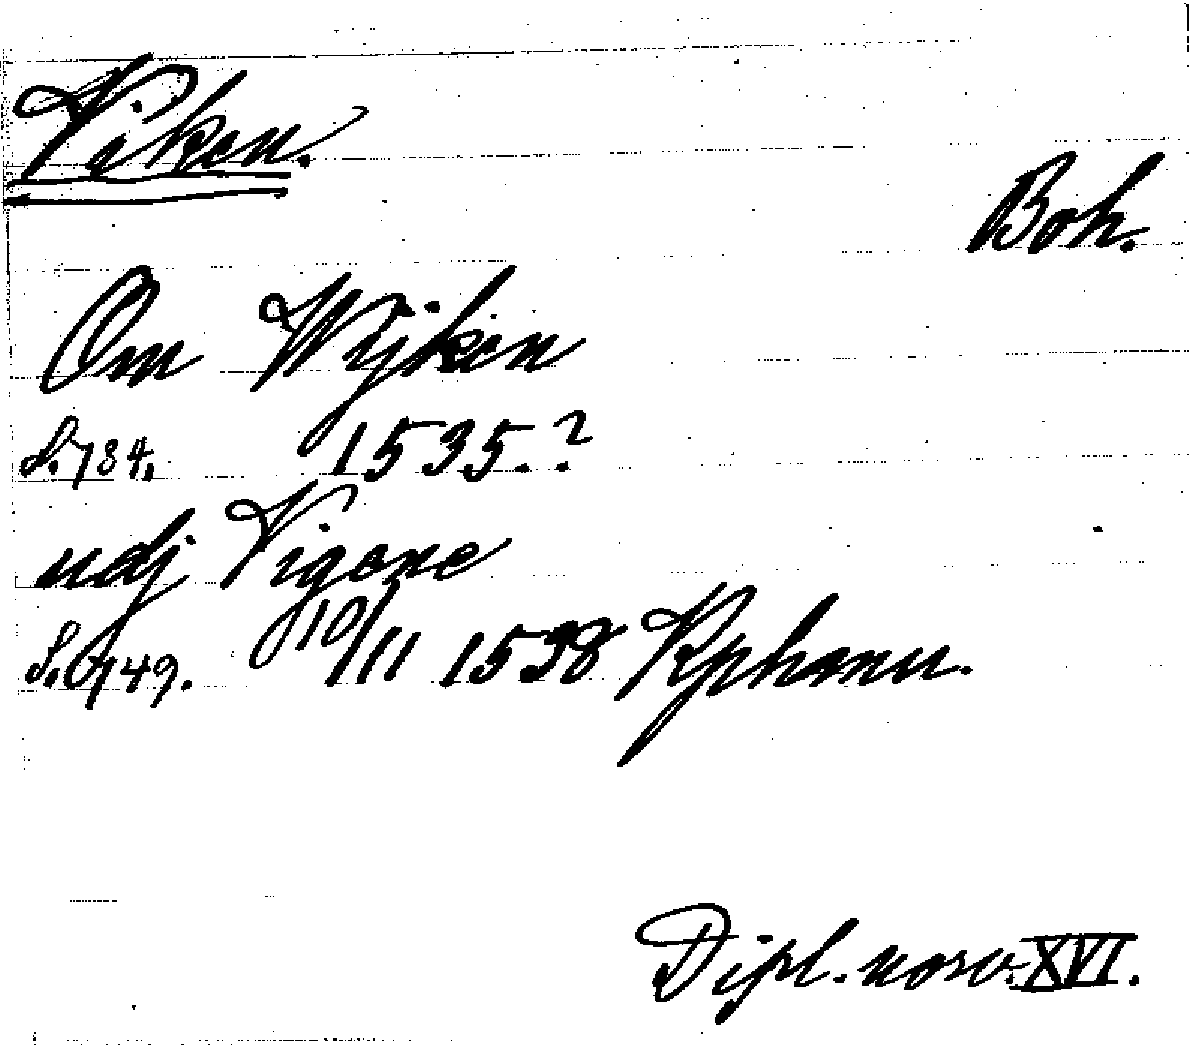 Viken.
Boh.
Om Wijken
S. 784. 1535.?
udj Vigene
S. 749. 10/11 1538 Kphamn.
Dipl. norv. XVI.